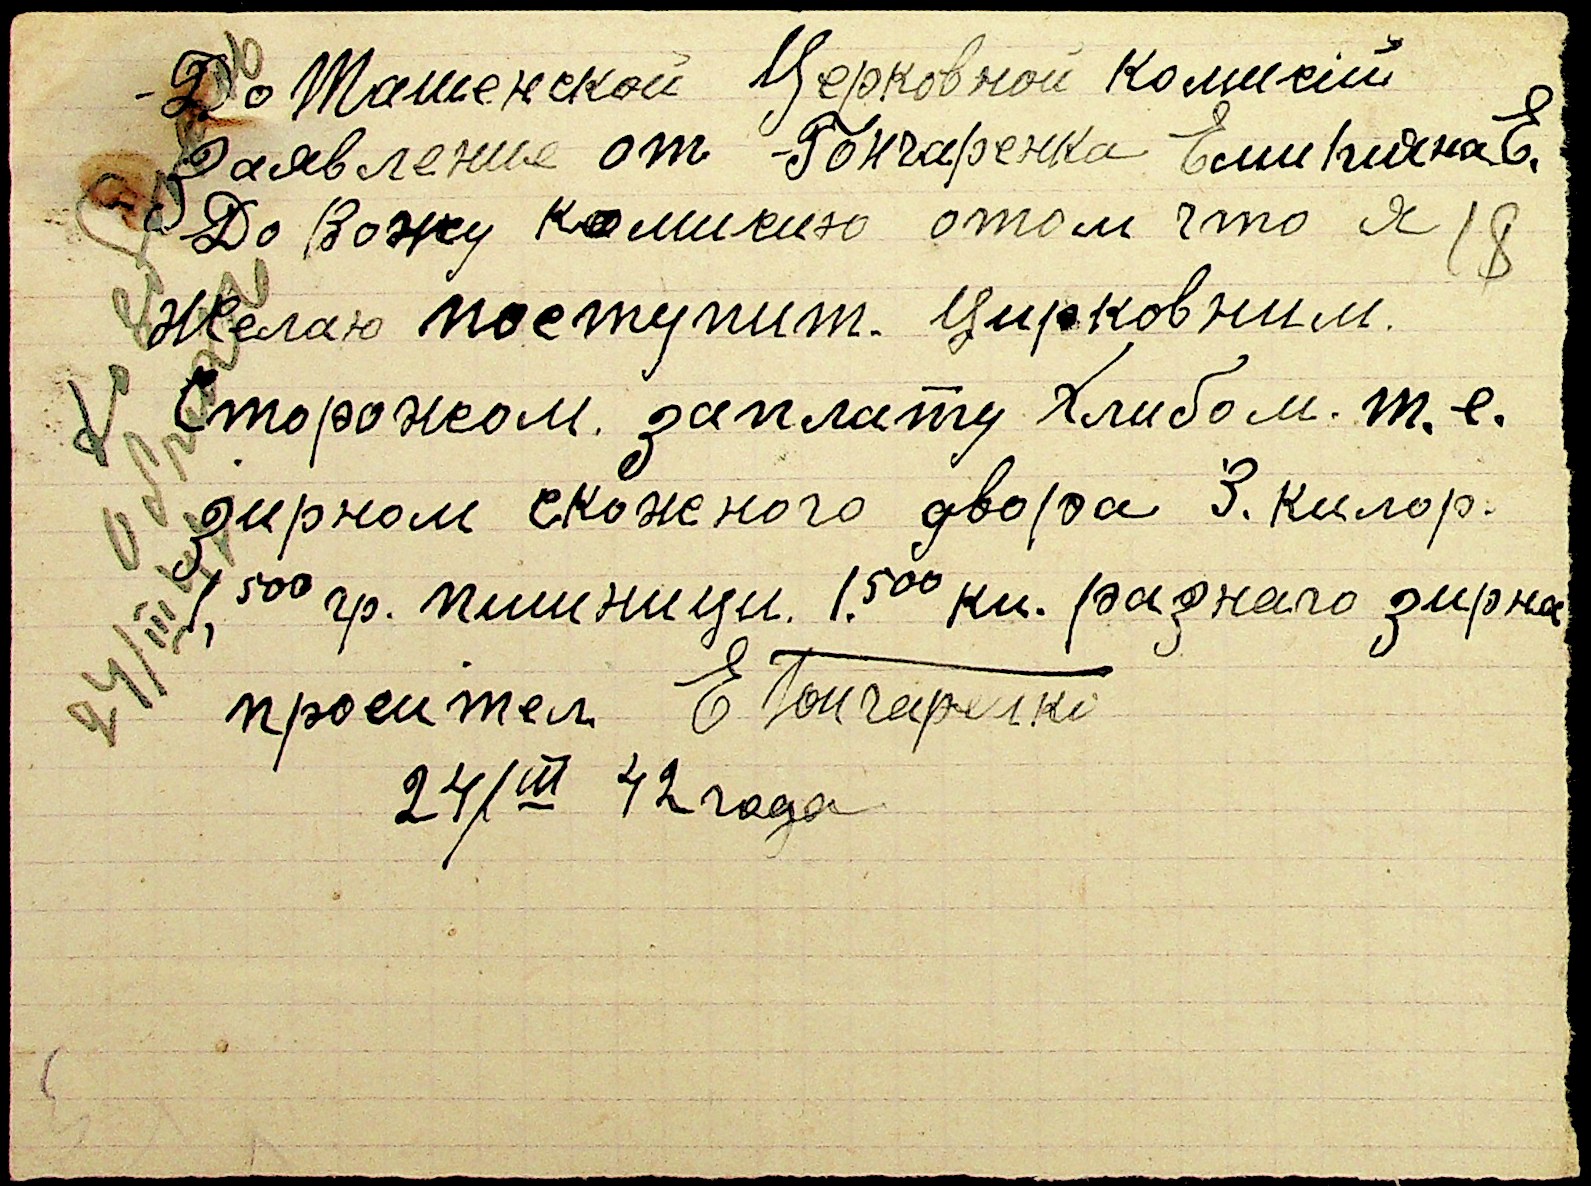 До Ташенской Церковной комисіи
Заявление от Гончаренка Емилияна Е.
До вожу комисию отом что я
18
желаю поступит. Цирковним.
Сторожом. заплату Хлибом. т.е.
зирном скоженого двора 3. килор.
1,500 гр. пшиници. 1.500 ки. разнаго зирна
просител Е Гончаренко
24/III 42 года
24/III 42